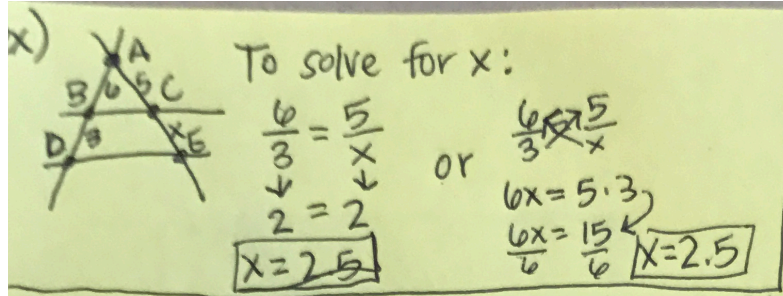 x)
A
B 6 5 C
D 3 x E
To solve for x:
6/3 = 5/x
↓ ↓
2 = 2
x = 2.5
or
6/3 5/x
6x = 5·3
6x/6 = 15/6
x = 2.5